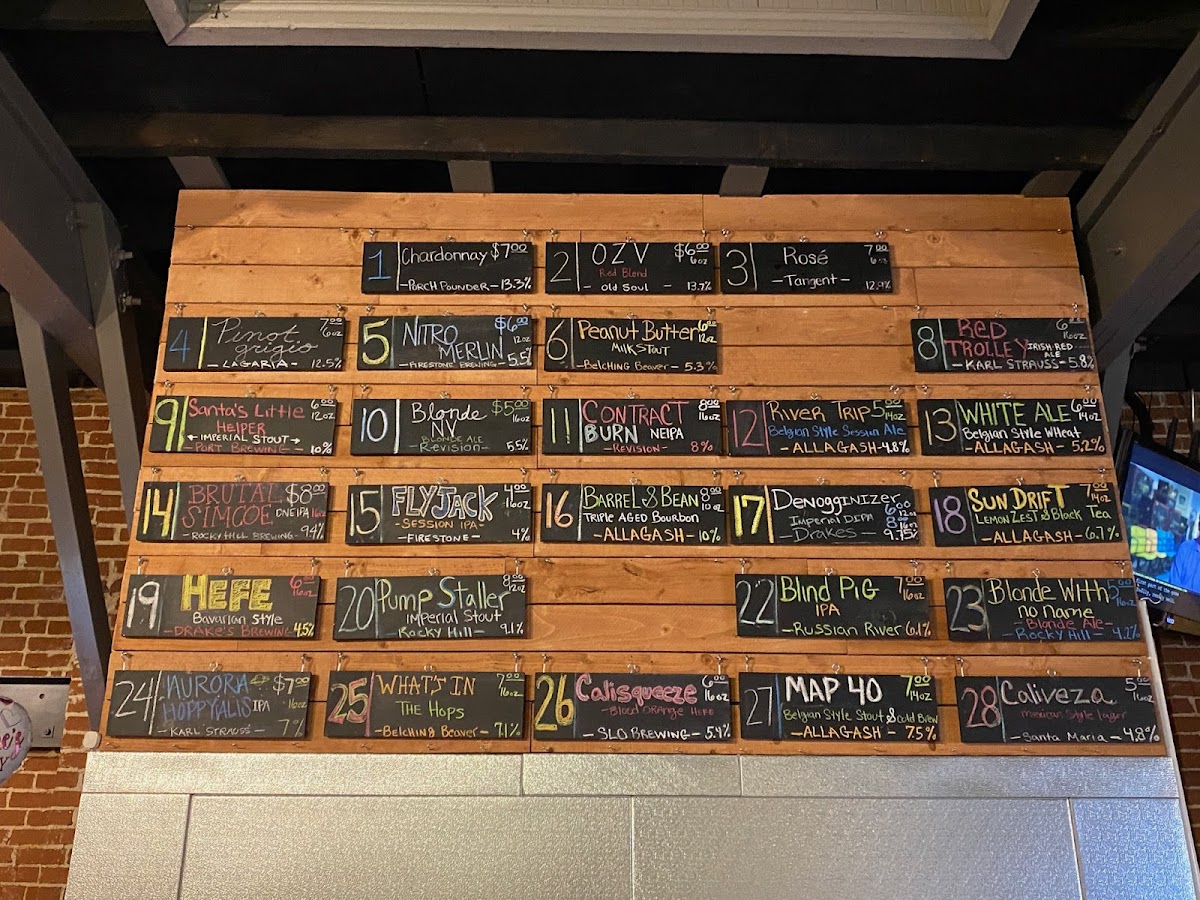 1 Chardonnay $7.00
- PORCH POUNDER - 13.3%
2 OZV $6.00
Red Blend 6oz
- Old Soul - 13.7%
3 Rosé 7.00
6oz
- Tangent - 12.9%
4 Pinot 7.00
grigio 6oz
- LAGARIA - 12.5%
5 NITRO $6.00
MERLIN 12oz
- FIRESTONE BREWING - 5.5%
6 Peanut Butter 6.00
MILK STOUT 12oz
- BELCHING Beaver - 5.3%
8 RED 6.00
TROLLEY 16oz
IRISH RED ALE
- KARL STRAUSS - 5.8%
9 Santa's Little 6.00
HELPER 12oz
IMPERIAL STOUT
- PORT BREWING - 10%
10 Blonde $5.00
NV 16oz
BLONDE ALE
- Revision - 5.5%
11 CONTRACT 8.00
BURN NEIPA 16oz
- REVISION - 8%
12 River Trip 5.00
14oz
Belgian Style Session Ale
- ALLAGASH - 4.8%
13 WHITE ALE 6.00
14oz
Belgian Style Wheat
- ALLAGASH - 5.2%
14 BRUTAL $8.00
SIMCOE 16oz
- ROCKY HILL BREWING - 9.4%
15 FLYJACK 4.00
16oz
- SESSION IPA -
- FIRESTONE - 4%
16 BARREL & BEAN 8.00
10oz
TRIPLE AGED Bourbon
- ALLAGASH - 10%
17 Denogginizer 6.00
12oz
Imperial DIPA 8.00
16oz
- Drakes - 9.75%
18 SUN DRIFT 7.00
14oz
LEMON ZEST & Black Tea
- ALLAGASH - 6.7%
19 HEFE 6.00
16oz
Bavarian Style
- DRAKE'S BREWING - 4.5%
20 Pump Staller 8.00
12oz
Imperial Stout
- Rocky Hill - 9.1%
22 Blind Pig 7.00
16oz
IPA
- Russian River 6.1%
23 Blonde With 5.00
no name 16oz
- Blonde Ale -
- Rocky Hill - 4.2%
24 AURORA $7.00
HOPPYALIS IPA 16oz
- KARL STRAUSS - 7%
25 WHAT'S IN 7.00
THE HOPS 16oz
- BELCHING Beaver - 7.1%
26 Calisqueeze 6.00
16oz
- Blood Orange Hefe
- SLO BREWING - 5.4%
27 MAP 40 7.00
14oz
Belgian Style Stout & Cold Brew
- ALLAGASH - 7.5%
28 Caliveza 5.00
16oz
mexican style lager
- Santa Maria - 4.8%